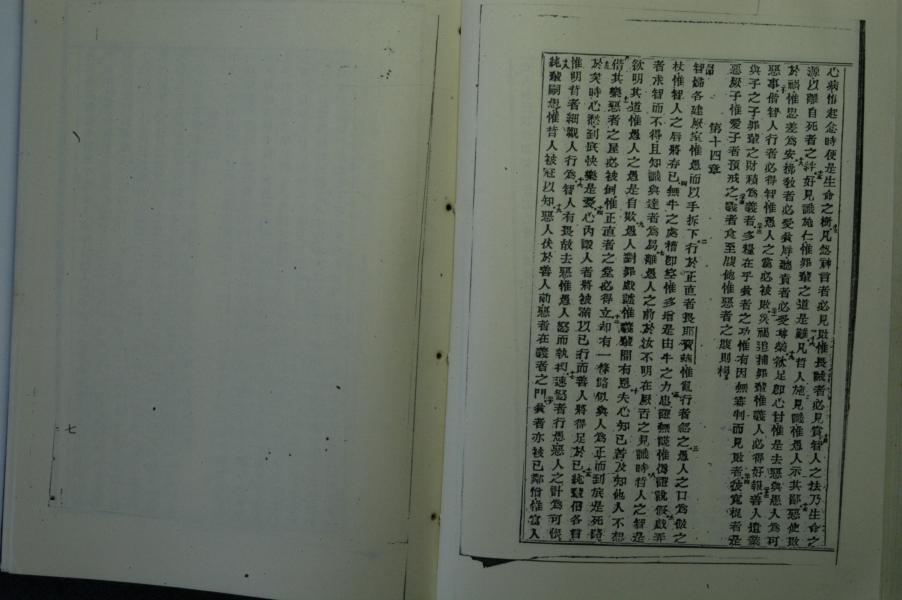 心病惟起念時便是生命之樹凡忽神言者必見敗惟畏誡者必見賞智人之法乃生命之
源以離自死者之絆好見識施仁惟罪輩之道是難凡哲人施見識惟愚人示其鄙惡使敗
於禍惟忠差為安拂教者必受貧辱聽責者必受尊榮欲足即心甘惟是去惡與愚人為可
惡事偕智人行者必得智惟愚人之黨必被敗災禍追捕罪輩惟義人必得好報善人遺業
與子之子罪輩之財積為義者多糧在乎貧者之功惟有因無審判而見敗者彼寬梃者是
惡厥子惟愛子者預戒之義者食至飽他惟惡者之腹則枵
第十四章
智婦各建厥室惟愚而以手拆下行於正直者畏耶賀華惟亂行者忽之愚人之口為傲之
杖惟智人之唇將存已無牛之處槽即空惟多增是由牛之力忠證無謊惟偽證說假戲弄
者求智而不得且知識與達者為易離愚人之前於汝不明在厥舌之見識時哲人之智是
欲明其道惟愚人之愚是自欺愚人對罪戲謔惟義輩間有恩夫心知已苦及知他人不想
偕其樂惡者之屋必被倒惟正直者之堂必得立却有一條路似與人為正而到底是死路
於笑時心愁到底快樂是憂心內踱人者將被滿以已行而善人將得足於已純輩信各言
惟明哲者細觀人行為智人有畏故去惡惟愚人怒而執拘速怒者行愚惡人之計為可恨
純輩嗣愚惟哲人被冠以知惡人伏於善人前惡者在義者之門貧者亦被已鄰憎惟富人
七